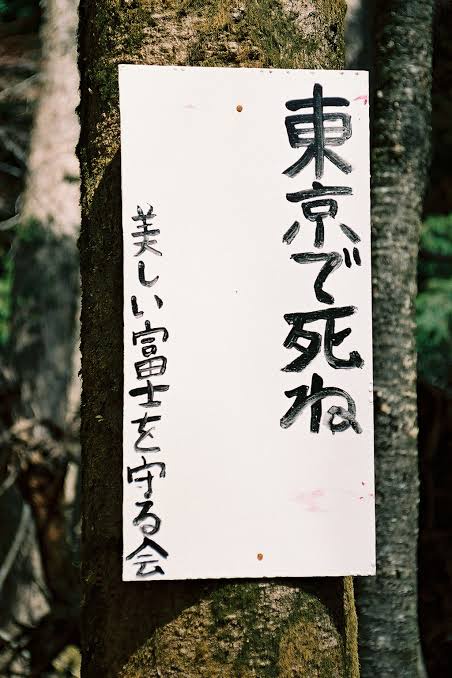 東京で死ね
美しい富士を守る会